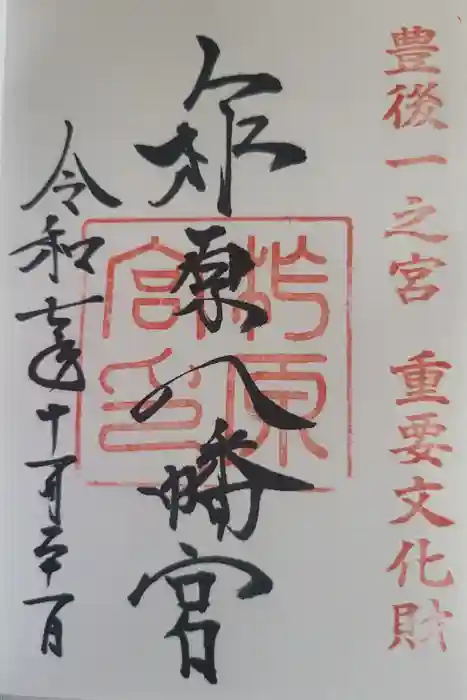 豊後一之宮 重要文化財
柞原八幡宮
柞原宮印
令和七年十一月二十一日